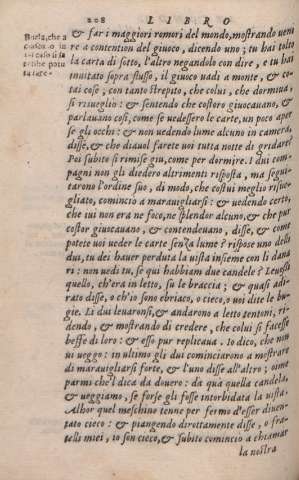 208 LIBRO
Burla, che a
& far i maggiori romori del mondo, mostrando veni
re a contention del giuoco, dicendo uno; tu hai tolto
la carta di sotto, l'altro negandolo con dire, e tu hai
inuitato sopra flusso, il giuoco vadi a monte, & co
tai cose; con tanto strepito, che colui, che dormiua,
si risueglio: & sentendo che costoro giuocauano, &
parlauano così, come se vedessero le carte, un poco aper
se gli occhi: & non vedendo lume alcuno in camera,
disse, & che diauol farete voi tutta notte di gridare?
Poi subito si rimise giu, come per dormire. I dui com-
pagni non gli diedero altrimenti risposta, ma segui-
tarono l'ordine suo, di modo, che costui meglio risue-
gliato, comincio a marauigliarsi: & vedendo certo,
che iui non era ne foco, ne splendor alcuno, & che pur
costor giuocauano, & contendeuano, disse, & come
potete voi veder le carte senza lume? rispose uno delli
dui, tu dei hauer perduta la vista insieme con li dana
ri: non uedi tu, se qui habbiam due candele? Leuossi
quello, ch'era in letto, su le braccia; & quasi adi-
rato disse, o ch'io sono ebriaco, o cieco, o voi dite le bu-
gie. Li dui leuaronsi, & andarono a letto tentoni, ri-
dendo, & mostrando di credere, che colui si facesse
beffe di loro: & esso pur replicaua. Io dico, che non
ui ueggo: in ultimo gli dui cominciarono a mostrare
di marauigliarsi forte, & l'uno disse all'altro; oime
parmi che'l dica da douero: da quà quella candela,
& ueggiamo, se forse gli fosse intorbidata la vista.
Alhor quel meschino tenne per fermo d'esser diuen-
tato cieco: & piangendo dirottamente disse, o fra-
telli miei, io son cieco, & subito comincio a chiamar
la nostra